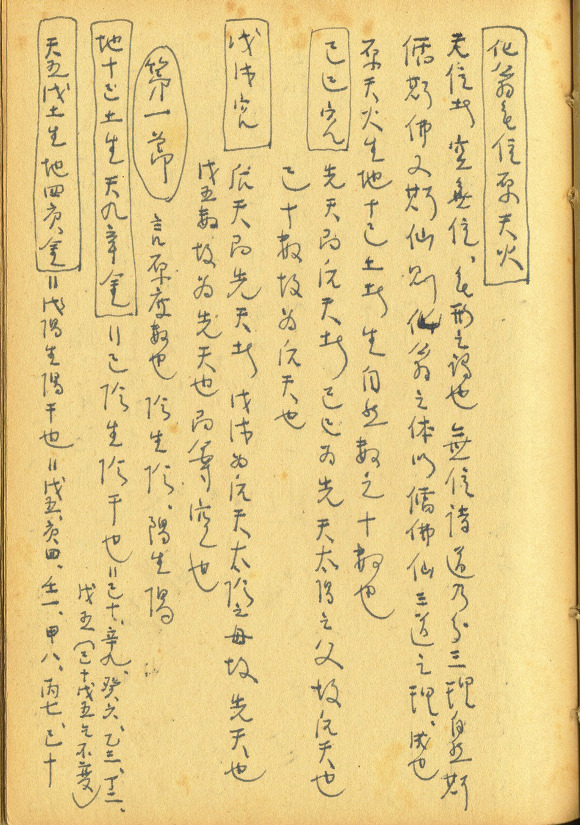 化翁无位原天火
无位者 空無位、无形之謂也 無位詩 道乃分三理自然斯
儒斯佛又斯仙則化翁之体 以儒佛仙三道之理、成也
原天火生地十己土者 生自然數之十數也
己巳宮 先天而后天者 己巳為先天太陽之父 故后天也
己十數故為后天也
戊戌宮 后天而先天者 戊戌為后天太陰之母 故先天也
戊五數故為先天也 而
第一節 言原度數也 陰生陰、陽生陽
地十己土生天九辛金 〃己陰生陰干也〃己十、辛九、癸六、乙三、丁二、
戊五(己十戊五之不變)
天五戊土生地四庚金 〃戊陽生陽干也〃戊五、庚四、壬一、甲八、丙七、己十